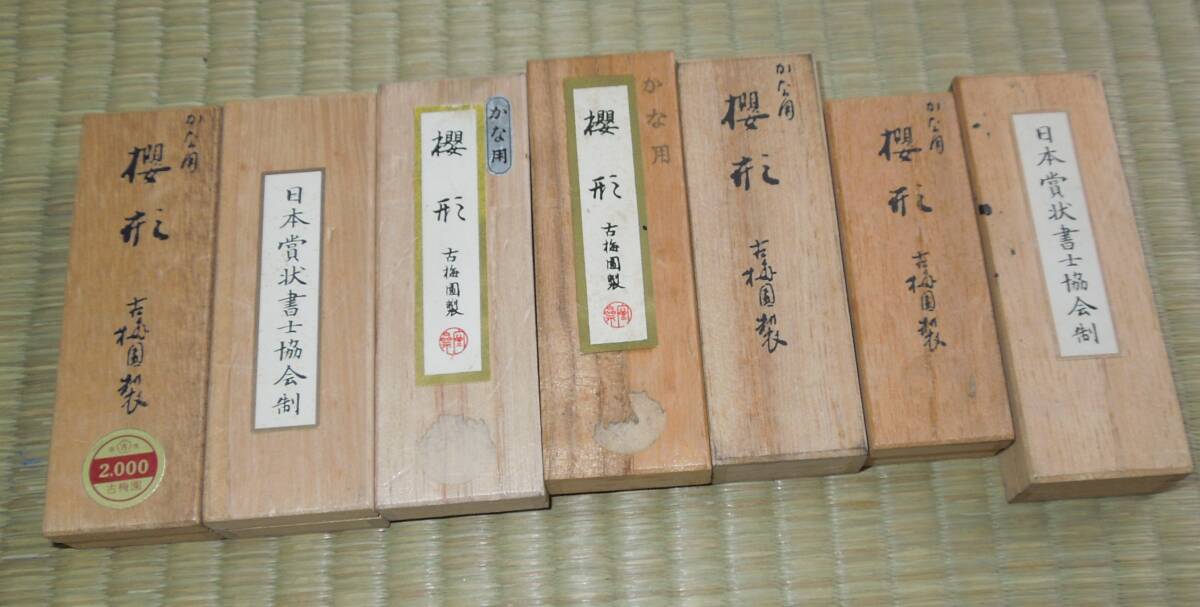 かな用
櫻形
古梅園製
2.000
古梅園
日本賞状書士協会制
かな用
櫻形
古梅園製
かな用
櫻形
古梅園製
かな用
櫻形
古梅園製
かな用
櫻形
古梅園製
日本賞状書士協会制